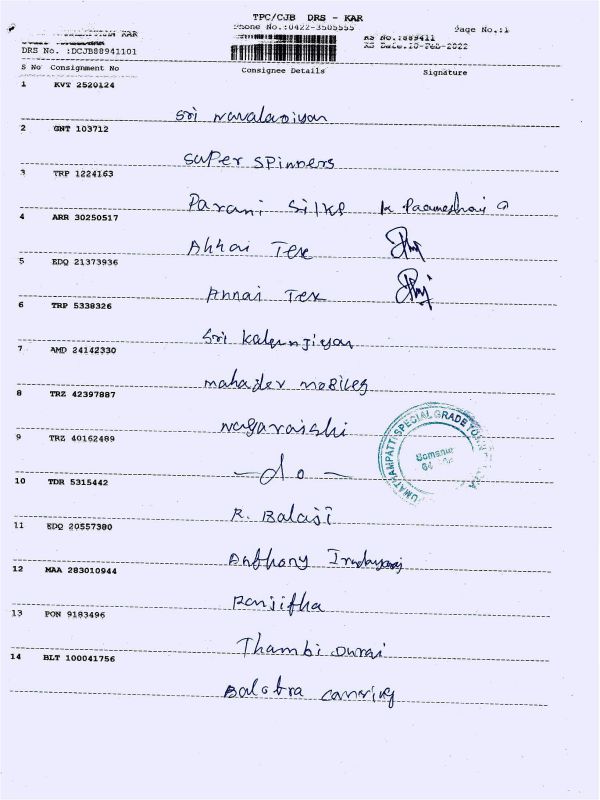 TPC/CJB DRS - KAR
Phone No.:0422-3505555 Page No.:1
KAR RS No.:1889411
DRS No. :DCJB88941101 RS Date:10-FEB-2022
S No Consignment No Consignee Details Signature
1 KVT 2520124
Sri
2 GNT 103712
Super Spinners
3 TRP 1224163
Parani Silks
4 ARR 30250517
Annai Tex
5 EDQ 21373936
Annai Tex
6 TRP 5338326
Sri Kalanjiyam
7 AMD 24142330
Mahadev Mobiles
8 TRZ 42397887
9 TRZ 40162489
-do-
10 TDR 5315442
R. Balaji
11 EDQ 20557380
Anthony
12 MAA 283010944
Ranjitha
13 PON 9183496
Thambi Durai
14 BLT 100041756
SPECIAL GRADE